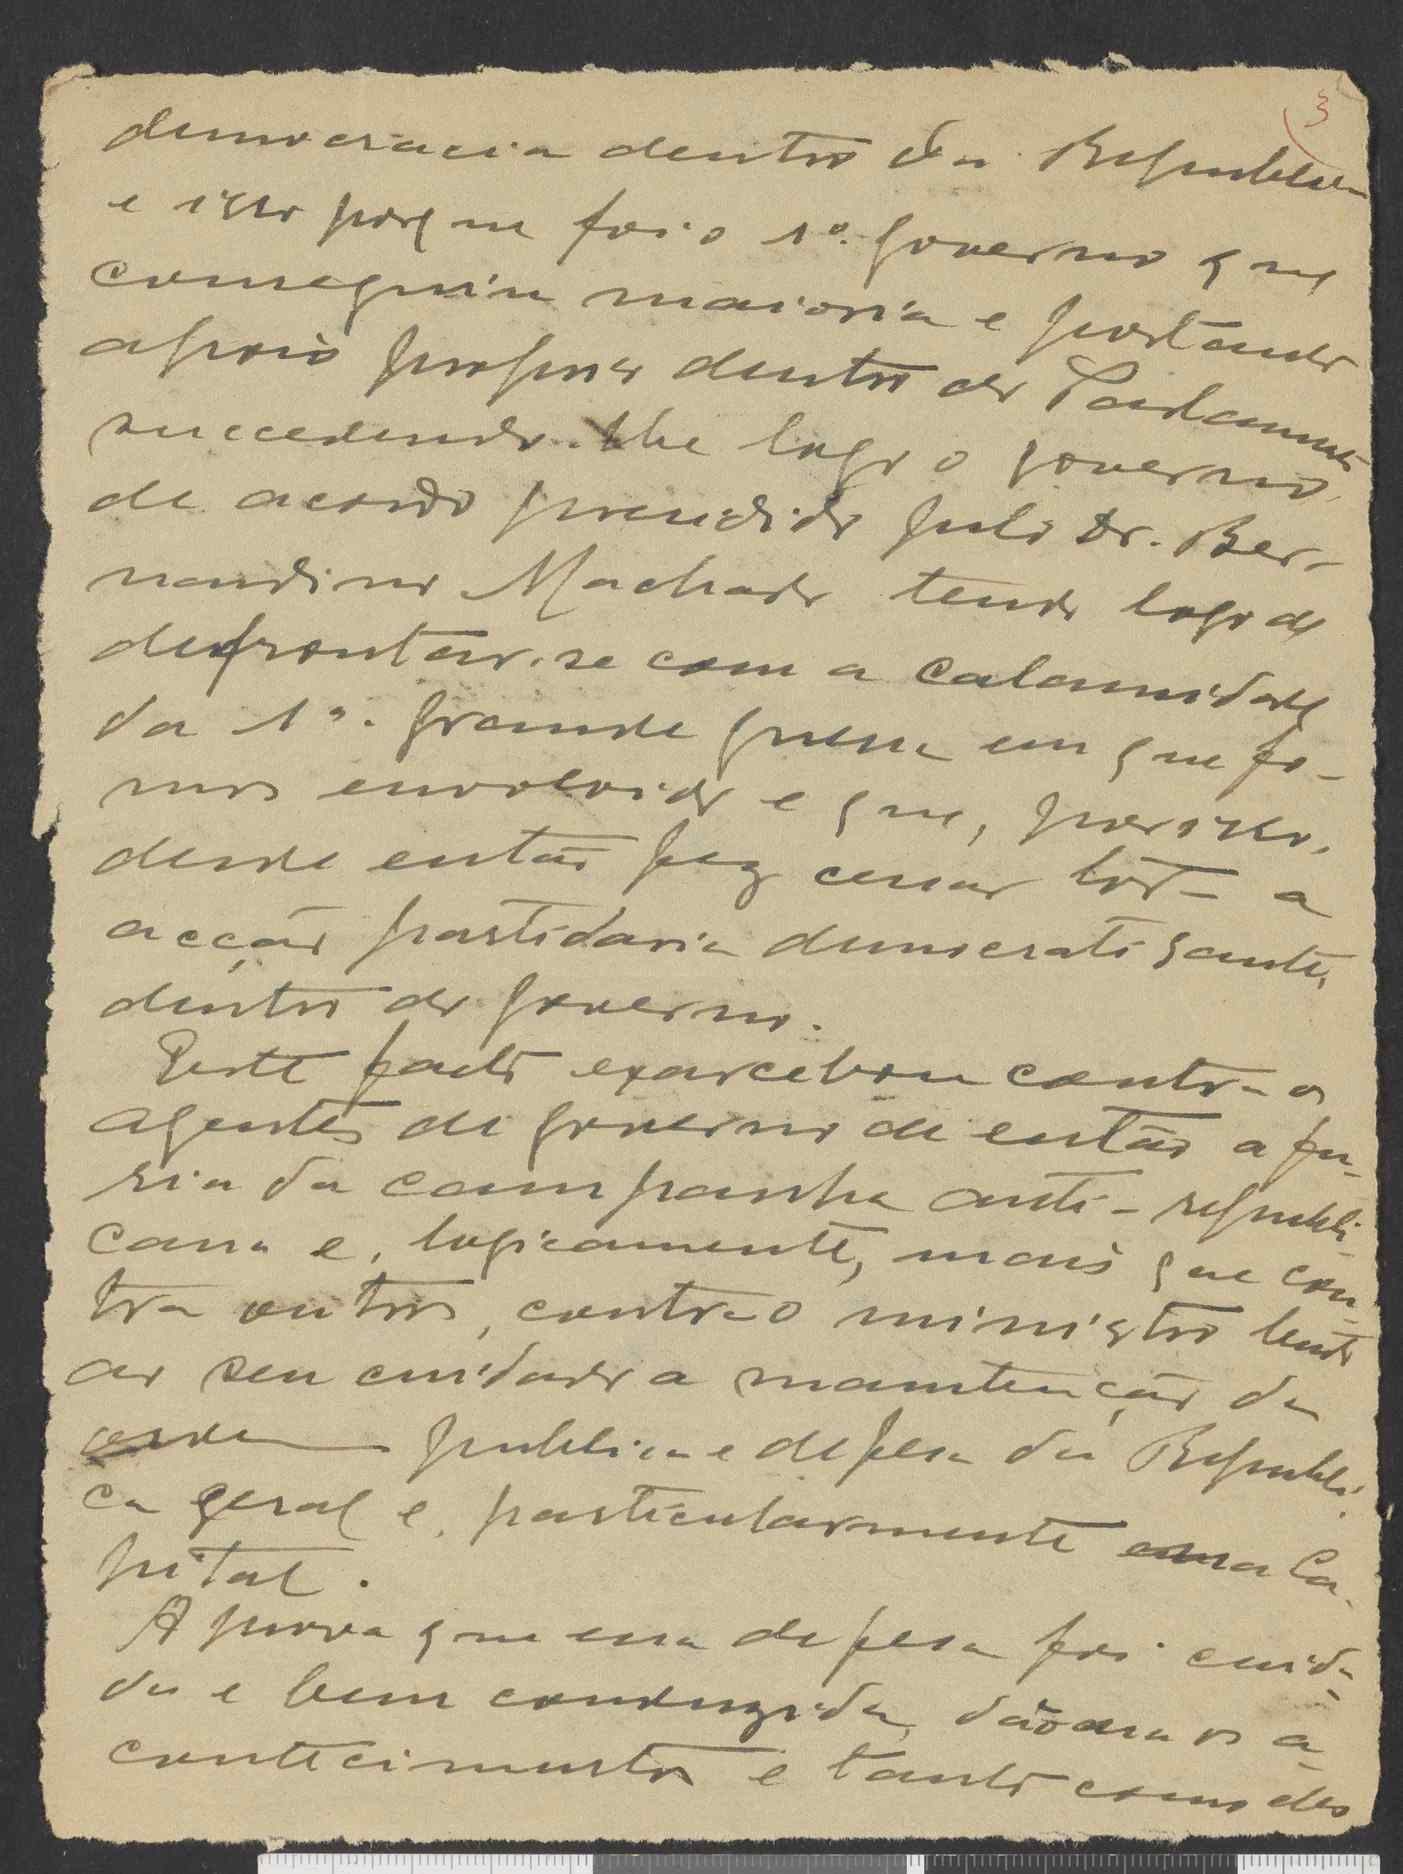 3
democracia dentro da Republica
e isso porque foi o 1º. governo que
conseguiu maioria e portanto
apoio proprio dentro do Parlamento
succedendo-lhe logo o governo,
de acordo presidido pelo Dr. Ber-
nardino Machado tendo logo de
defrontar-se com a calamidade
da 1ª. grande guerra em que fo-
mos envolvidos e que, por isso,
desde então fez cessar toda a
acção partidaria democratisante,
dentro do governo.
Este facto exarcebou contra os
agentes do governo de então a fu-
ria da campanha anti-republi-
cana e, logicamente, mais que con-
tra outros, contra o ministro tendo
ao seu cuidado a manutenção da
ordem publica e defesa da Republi-
ca geral e, particularmente na Ca-
pital.
A prova que essa defesa foi cuida-
da e bem conduzida, dão-na os a-
contecimentos e tanto como dos